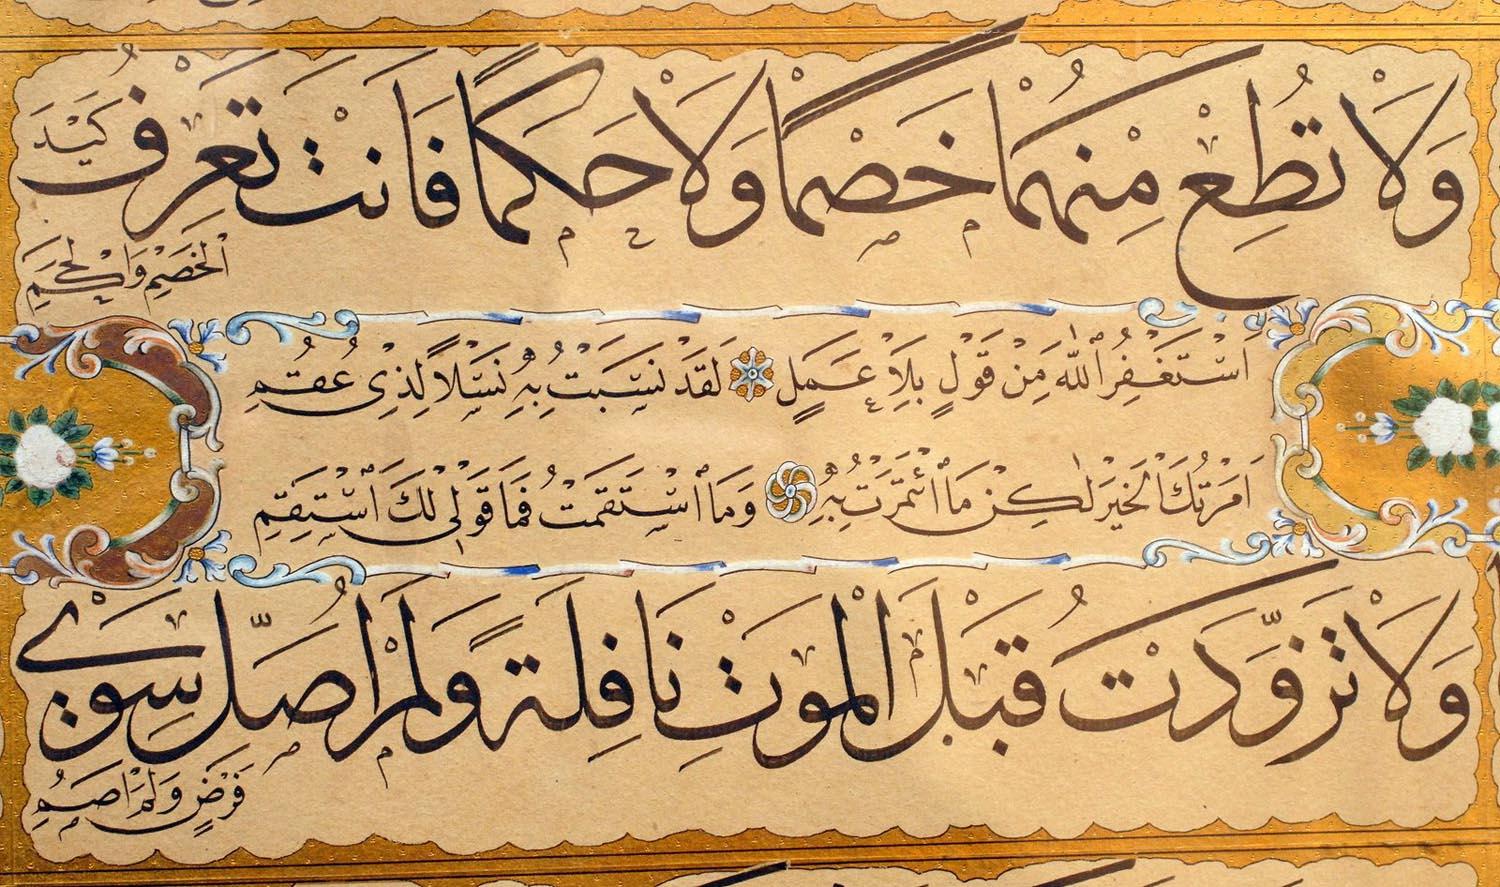 وَلَا تُطِعْ مِنْهُمَا خَصْمًا وَلَا حَكَمًا فَانْتَ تَعْرِفُ كَيْدَ
الْخَصْمِ وَالْحَكَمِ
اَسْتَغْفِرُ ٱللّٰهَ مِنْ قَوْلٍ بِلَا عَمَلٍ لَقَدْ نَسَبْتُ بِهٖ نَسْلًا لِذِى عُقُمِ
اَمَرْتُكَ الْخَيْرَ لٰكِنْ مَا ٱئْتَمَرْتُ بِهٖ وَمَا ٱسْتَقَمْتُ فَمَا قَوْلِى لَكَ ٱسْتَقِمِ
وَلَا تَزَوَّدْتُ قَبْلَ الْمَوْتِ نَافِلَةً وَلَمْ اُصَلِّ سِوَى
فَرْضٍ وَلَمْ اَصُمِ